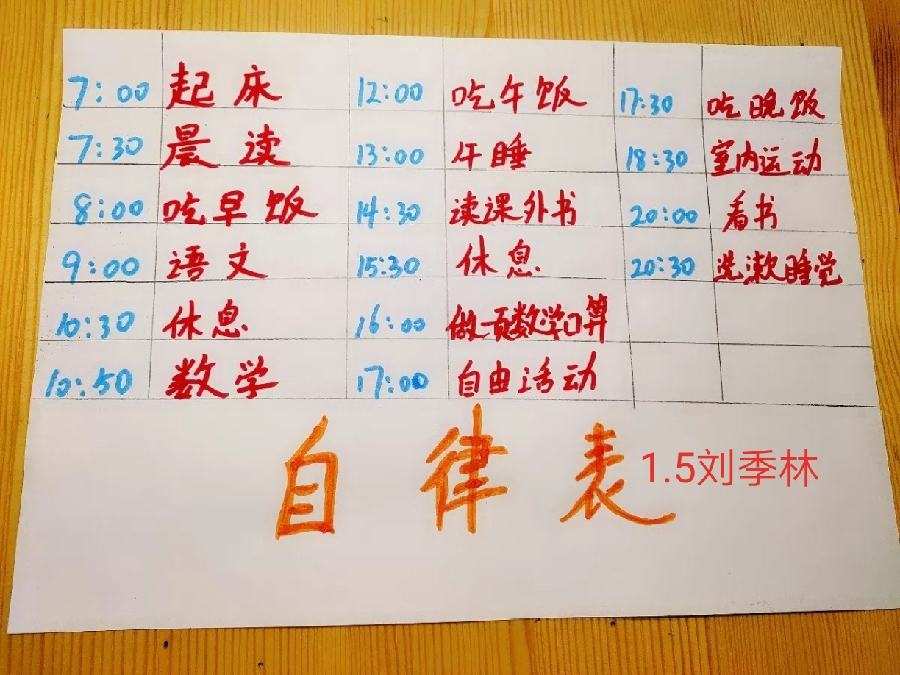 7:00 起床 12:00 吃午饭 17:30 吃晚饭
7:30 晨读 13:00 午睡 18:30 室内运动
8:00 吃早饭 14:30 读课外书 20:00 看书
9:00 语文 15:30 休息 20:30 洗漱睡觉
10:30 休息 16:00 做一页数学口算
10:50 数学 17:00 自由活动
自律表 1.5刘季林